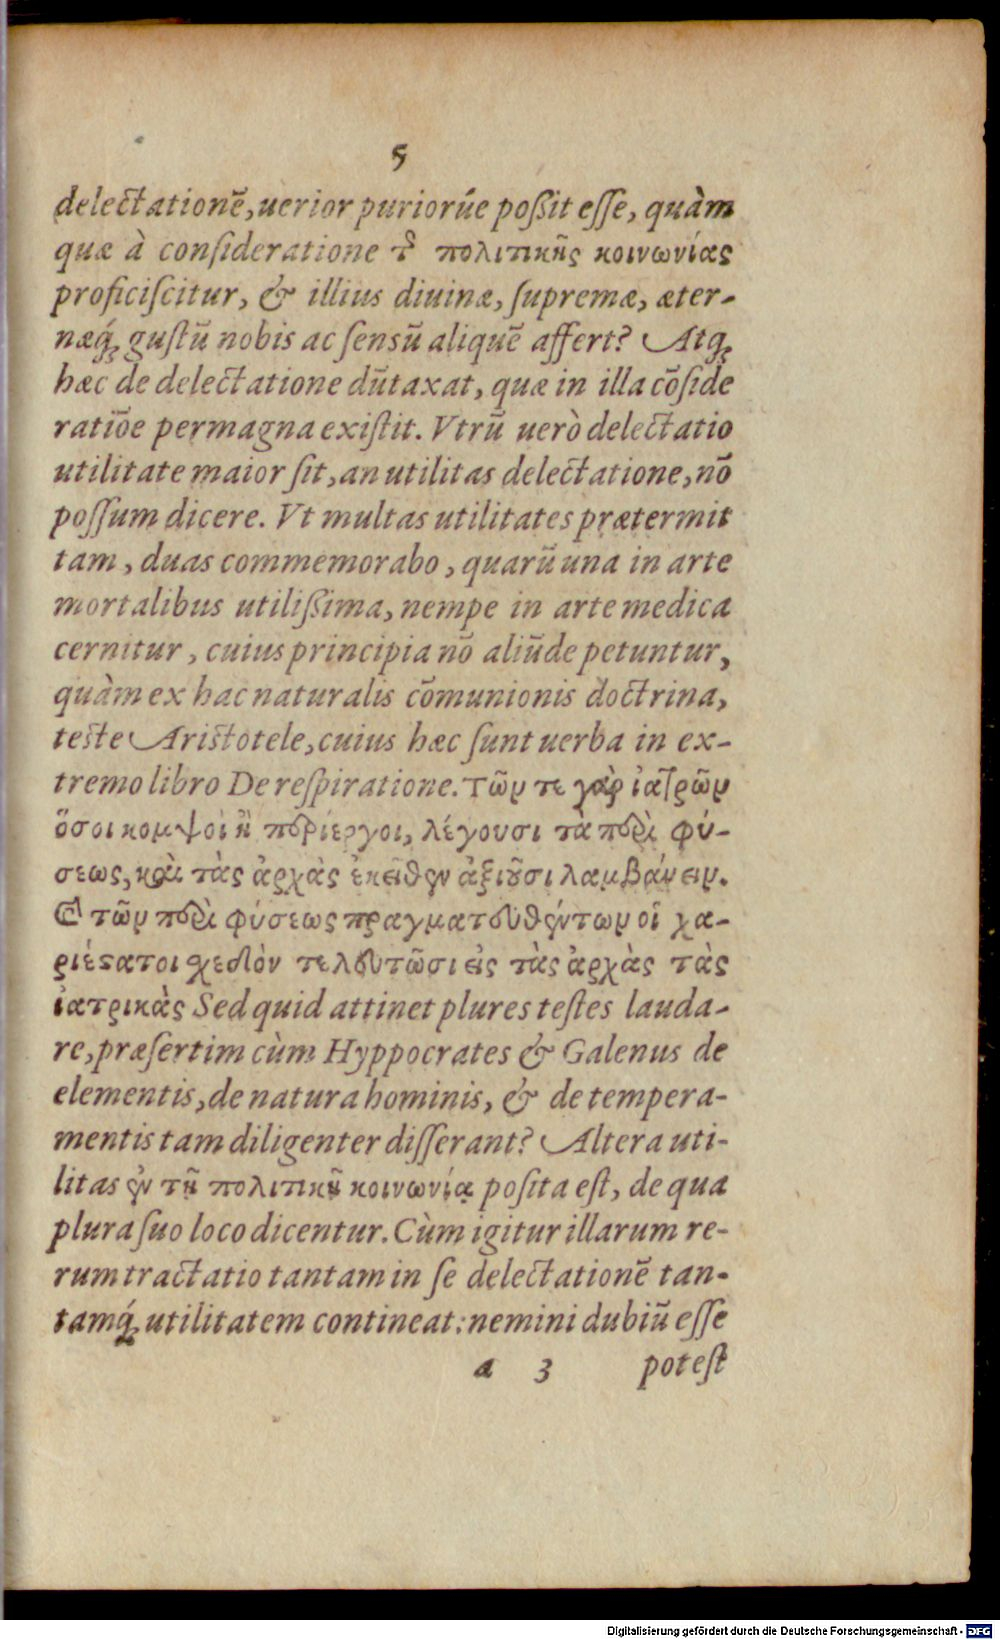 5
delectationẽ, uerior puriorúe poßit eſſe, quàm
quæ à conſideratione τῆς πολιτικῆς κοινωνίας
proficiſcitur, & illius diuinæ, ſupremæ, æter-
næq́ꝫ guſtũ nobis ac ſensũ aliquẽ affert? Atqꝫ
hæc de delectatione dũtaxat, quæ in illa cõſide
ratiõe permagna exiſtit. Vtrũ uerò delectatio
utilitate maior ſit, an utilitas delectatione, nõ
poſſum dicere. Vt multas utilitates prætermit
tam, duas commemorabo, quarũ una in arte
mortalibus utilißima, nempe in arte medica
cernitur, cuius principia nõ aliũde petuntur,
quàm ex hac naturalis cõmunionis doctrina,
teste Aristotele, cuius hæc ſunt uerba in ex-
tremo libro De reſpiratione. Τῶν τε γὰρ ἰατρῶν
ὅσοι κομψοὶ ἢ περίεργοι, λέγουσι τὰ περὶ φύ-
σεως, καὶ τὰς ἀρχὰς ἐκεῖθεν ἀξιοῦσι λαμβάνειν.
Καὶ τῶν περὶ φύσεως πραγματευθέντων οἱ χα-
ριέστατοι σχεδὸν τελευτῶσι εἰς τὰς ἀρχὰς τὰς
ἰατρικὰς Sed quid attinet plures teſtes lauda-
re, præſertim cùm Hyppocrates & Galenus de
elementis, de natura hominis, & de tempera-
mentis tam diligenter diſſerant? Altera uti-
litas ἐν τῇ πολιτικῇ κοινωνίᾳ poſita eſt, de qua
plura ſuo loco dicentur. Cùm igitur illarum re-
rum tractatio tantam in ſe delectationẽ tan-
tamq́ꝫ utilitatem contineat: nemini dubiũ eſſe
a 3 poteſt
Digitalisierung gefördert durch die Deutsche Forschungsgemeinschaft - DFG